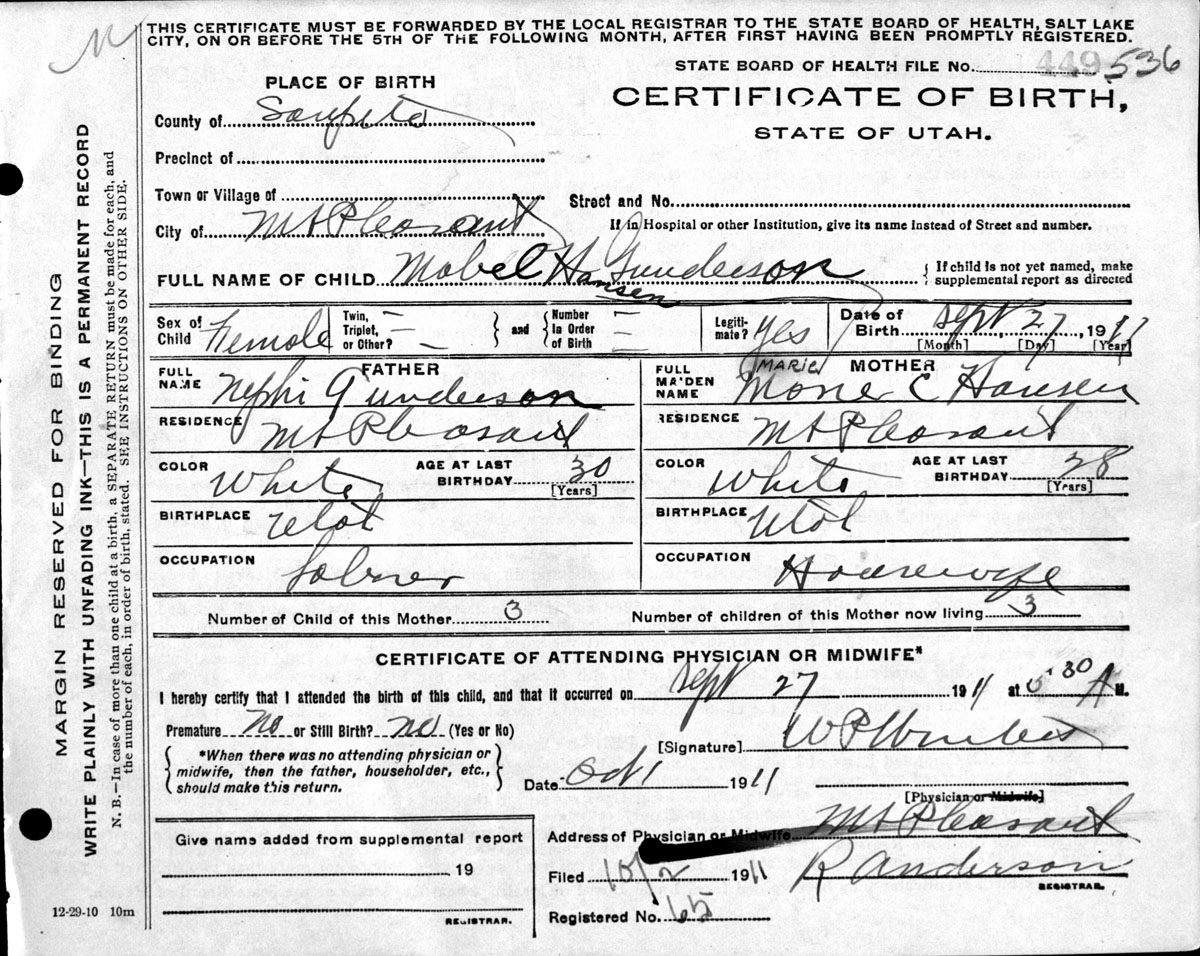 THIS CERTIFICATE MUST BE FORWARDED BY THE LOCAL REGISTRAR TO THE STATE BOARD OF HEALTH, SALT LAKE
CITY, ON OR BEFORE THE 5TH OF THE FOLLOWING MONTH, AFTER FIRST HAVING BEEN PROMPTLY REGISTERED.
STATE BOARD OF HEALTH FILE No. 449 536
CERTIFICATE OF BIRTH,
STATE OF UTAH.
PLACE OF BIRTH
County of Sanpete
Precinct of
Town or Village of
Street and No.
City of Mt Pleasant
If in Hospital or other Institution, give its name instead of Street and number.
FULL NAME OF CHILD Mabel Hansen Gunderson
{ If child is not yet named, make
supplemental report as directed
Sex of Child Female
Twin, Triplet, or Other? —
and
Number In Order of Birth —
Legitimate? Yes
Date of Birth Sept 27, 1911
[Month] [Day] [Year]
FATHER
FULL NAME Nephi Gunderson
RESIDENCE Mt Pleasant
COLOR White AGE AT LAST BIRTHDAY 30
[Years]
BIRTHPLACE Utah
OCCUPATION Laborer
MOTHER
MARIE
FULL MAIDEN NAME C Hansen
RESIDENCE Mt Pleasant
COLOR White AGE AT LAST BIRTHDAY 28
[Years]
BIRTHPLACE Utah
OCCUPATION Housewife
Number of Child of this Mother 3
Number of children of this Mother now living 3
CERTIFICATE OF ATTENDING PHYSICIAN OR MIDWIFE*
I hereby certify that I attended the birth of this child, and that it occurred on Sept 27 1911 at 30 A M.
Premature no or Still Birth? no (Yes or No)
*When there was no attending physician or
midwife, then the father, householder, etc.,
should make this return.
[Signature] W P
Date Oct 1 1911
[Physician or Midwife]
Address of Physician or Midwife Mt Pleasant
Filed 10/2 1911 R Anderson
REGISTRAR.
Registered No. 65
Give name added from supplemental report
19
REGISTRAR.
12-29-10 10m
MARGIN RESERVED FOR BINDING
WRITE PLAINLY WITH UNFADING INK—THIS IS A PERMANENT RECORD
N. B.—In case of more than one child at a birth, a SEPARATE RETURN must be made for each, and
the number of each, in order of birth, stated. SEE INSTRUCTIONS ON OTHER SIDE.